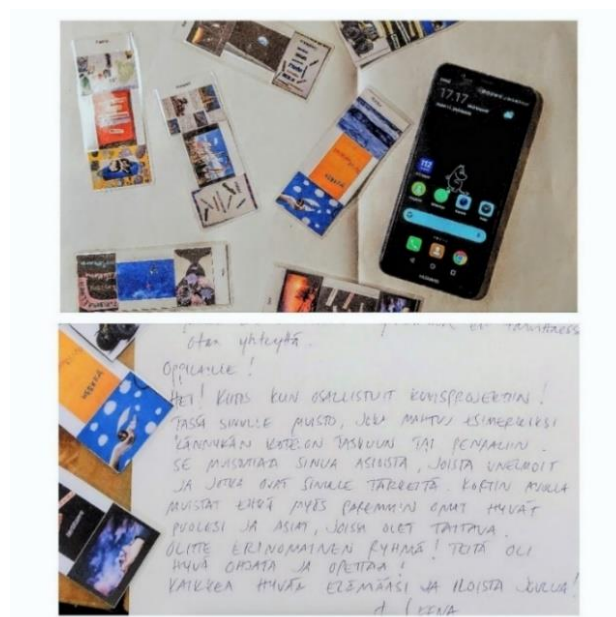 17.17
112
HUAWEI
ota yhteyttä.
OPPILAALLE!
HEI! KIITOS KUN OSALLISTUIT KUVISPROJEKTIIN!
TÄSSÄ SINULLE MUISTO, JOKA MAHTUU ESIMERKIKSI
KÄNNYKÄN KOTELON TASKUUN TAI PENAALIIN.
SE MUISTUTTAA SINUA ASIOISTA, JOISTA UNELMOIT
JA JOTKA OVAT SINULLE TÄRKEITÄ. KORTIN AVULLA
MUISTAT EHKÄ MYÖS PAREMMIN OMAT HYVÄT
PUOLESI JA ASIAT, JOISSA OLET TAITAVA.
OLITTE ERINOMAINEN RYHMÄ! TEITÄ OLI
HYVÄ OHJATA JA OPETTAA!
KAIKKEA HYVÄÄ ELÄMÄÄSI JA ILOISTA JOULUA!